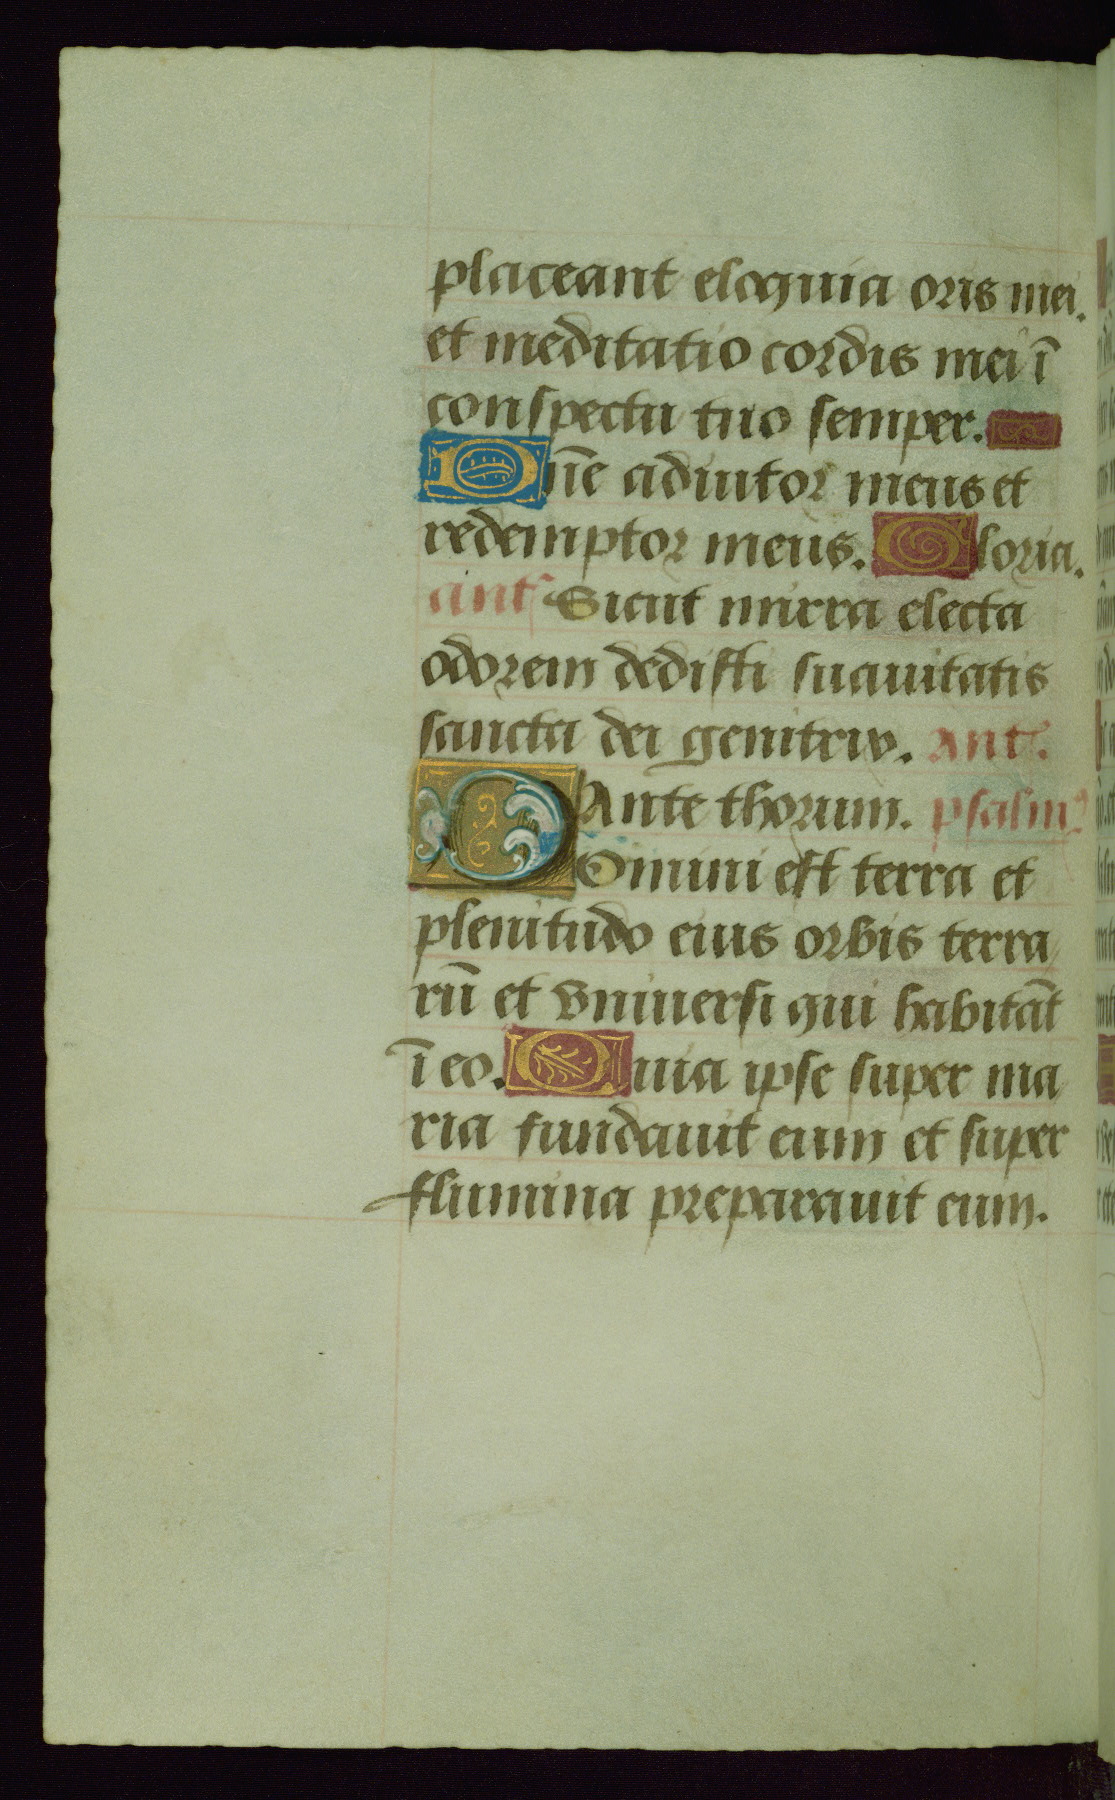 placeant eloquia oris mei.
et meditatio cordis mei ī
conspectu tuo semper.
Dn̄e adiutor meus et
redemptor meus. Gloria.
ant' Sicut mirra electa
odorem dedisti suauitatis
sancta dei genitrix. Ant'.
Ante thorum. psalm'
Domini est terra et
plenitudo eius orbis terra
rū et vniuersi qui habitāt
ī eo. Quia ipse super ma
ria fundauit eum et super
flumina preparauit eum.